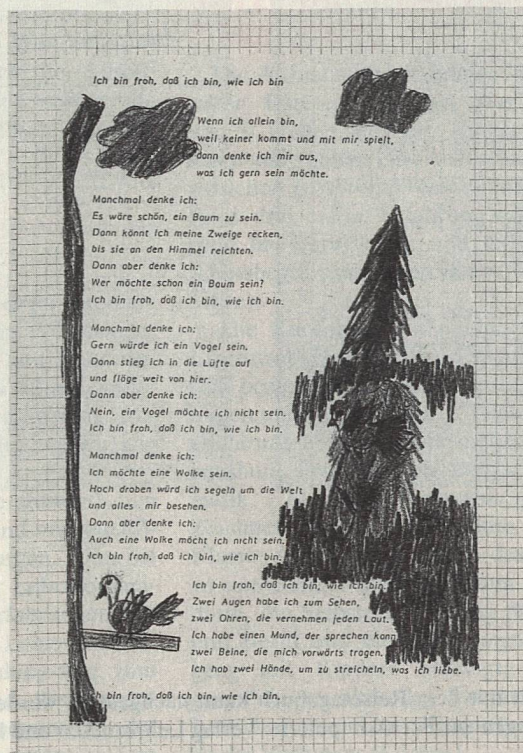 Ich bin froh, daß ich bin, wie ich bin
Wenn ich allein bin,
weil keiner kommt und mit mir spielt,
dann denke ich mir aus,
was ich gern sein möchte.
Manchmal denke ich:
Es wäre schön, ein Baum zu sein.
Dann könnt ich meine Zweige recken,
bis sie an den Himmel reichten.
Dann aber denke ich:
Wer möchte schon ein Baum sein?
Ich bin froh, daß ich bin, wie ich bin.
Manchmal denke ich:
Gern würde ich ein Vogel sein.
Dann stieg ich in die Lüfte auf
und flöge weit von hier.
Dann aber denke ich:
Nein, ein Vogel möchte ich nicht sein.
Ich bin froh, daß ich bin, wie ich bin.
Manchmal denke ich:
Ich möchte eine Wolke sein.
Hoch droben würd ich segeln um die Welt
und alles mir besehen.
Dann aber denke ich:
Auch eine Wolke möcht ich nicht sein.
Ich bin froh, daß ich bin, wie ich bin.
Ich bin froh, daß ich bin, wie ich bin.
Zwei Augen habe ich zum Sehen,
zwei Ohren, die vernehmen jeden Laut.
Ich habe einen Mund, der sprechen kann
zwei Beine, die mich vorwärts tragen.
Ich hab zwei Hände, um zu streicheln, was ich liebe.
Ich bin froh, daß ich bin, wie ich bin.